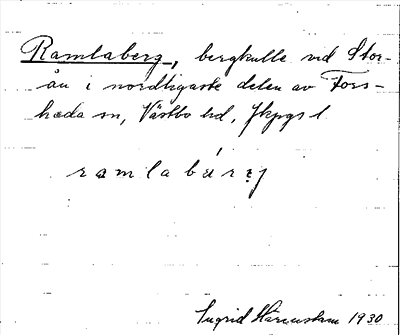 Ramlaberg, bergkulle vid Stor-
ån i nordligaste delen av Fors-
heda sn, Västbo hd, Jkpgs l.
ramlabárj
Ingrid 1930